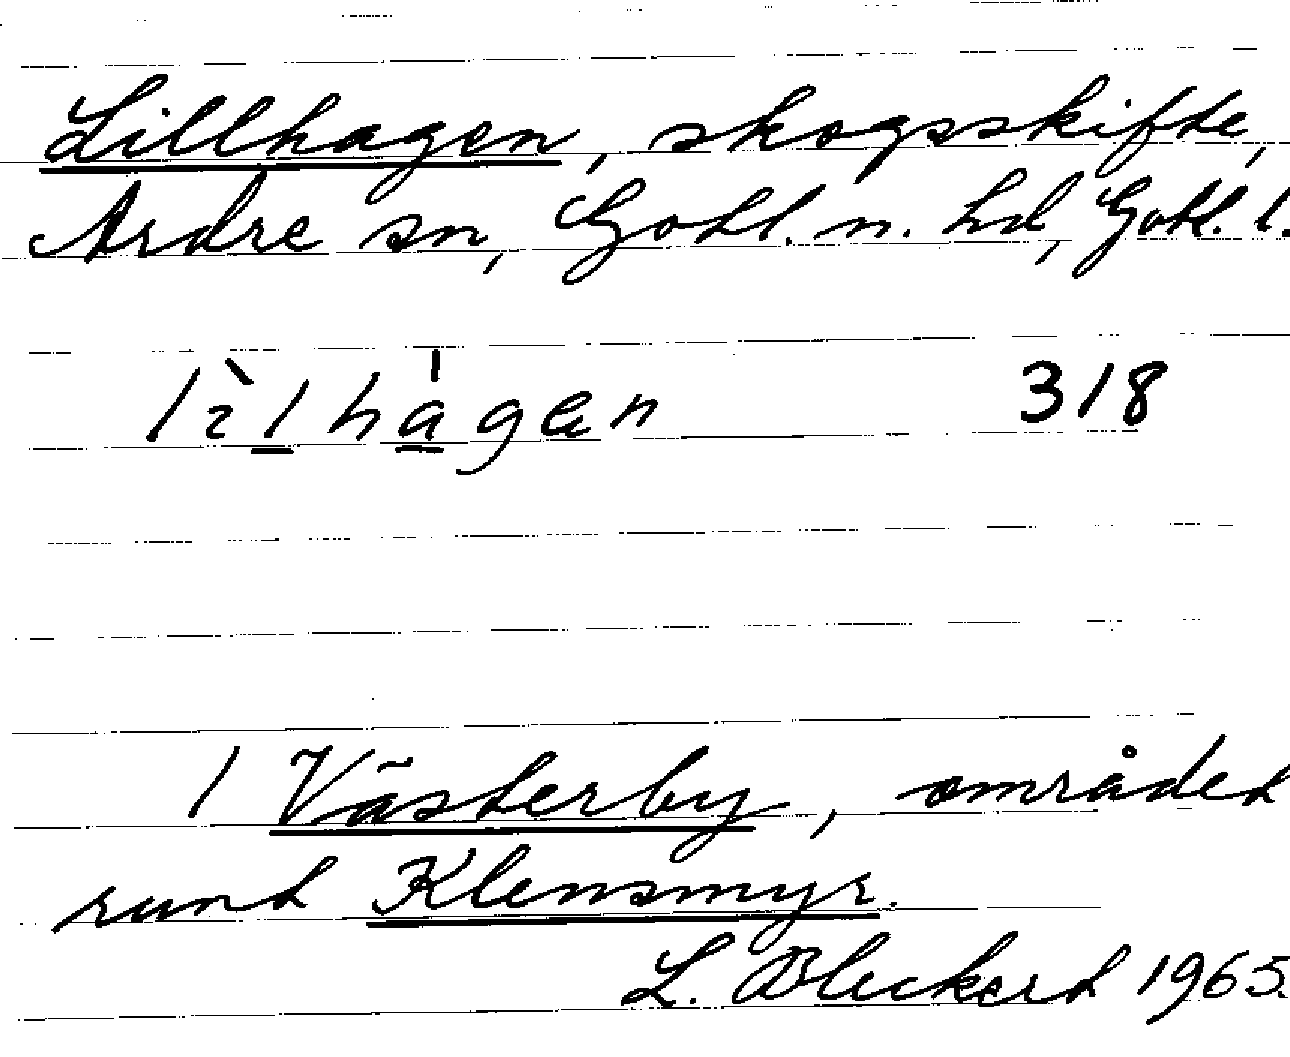 Lillhagen, skogsskifte,
Ardre sn, Gotl. n. hd, Gotl. l.
lìlhágen 318
I Västerby, området
runt Klensmyr.
L. Bleckert 1965.